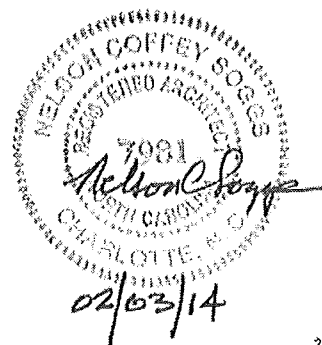 NELSON COFFEY SOGGS
REGISTERED ARCHITECT
7981
Nelson C Soggs
NORTH CAROLINA
CHARLOTTE, N.C.
02/03/14